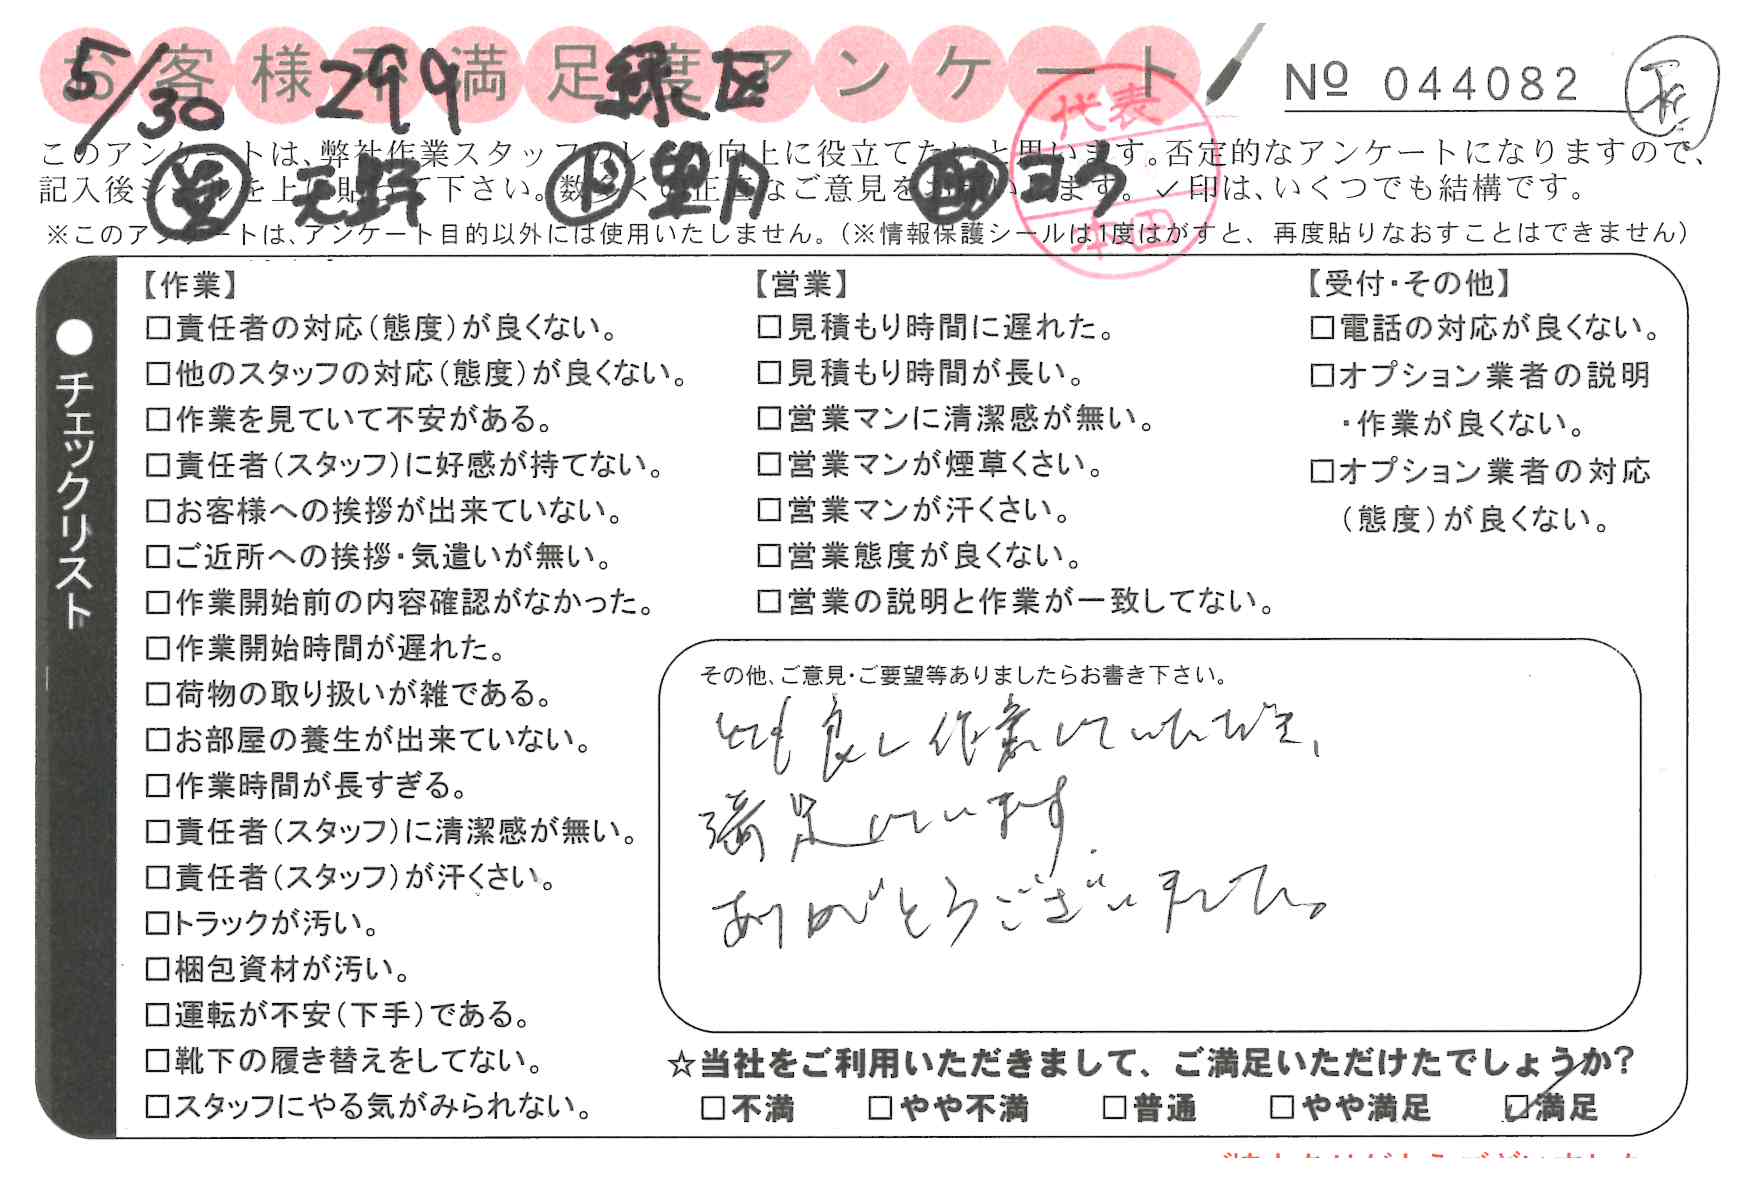 お客様不満足度アンケート
5/30 299 緑区
№ 044082
このアンケートは、弊社作業スタッフのレベル向上に役立てたいと思います。否定的なアンケートになりますので、
記入後シールを上に貼って下さい。数多くの正直なご意見をお願いします。✓印は、いくつでも結構です。
営 天野 ト 望月 助 ヨウ
代表
本田
※このアンケートは、アンケート目的以外には使用いたしません。(※情報保護シールは1度はがすと、再度貼りなおすことはできません)
●チェックリスト
【作業】
□責任者の対応(態度)が良くない。
□他のスタッフの対応(態度)が良くない。
□作業を見ていて不安がある。
□責任者(スタッフ)に好感が持てない。
□お客様への挨拶が出来ていない。
□ご近所への挨拶・気遣いが無い。
□作業開始前の内容確認がなかった。
□作業開始時間が遅れた。
□荷物の取り扱いが雑である。
□お部屋の養生が出来ていない。
□作業時間が長すぎる。
□責任者(スタッフ)に清潔感が無い。
□責任者(スタッフ)が汗くさい。
□トラックが汚い。
□梱包資材が汚い。
□運転が不安(下手)である。
□靴下の履き替えをしてない。
□スタッフにやる気がみられない。
【営業】
□見積もり時間に遅れた。
□見積もり時間が長い。
□営業マンに清潔感が無い。
□営業マンが煙草くさい。
□営業マンが汗くさい。
□営業態度が良くない。
□営業の説明と作業が一致してない。
【受付・その他】
□電話の対応が良くない。
□オプション業者の説明
・作業が良くない。
□オプション業者の対応
(態度)が良くない。
その他、ご意見・ご要望等ありましたらお書き下さい。
とても良い作業していただき、
満足しています。
ありがとうございました。
☆当社をご利用いただきまして、ご満足いただけたでしょうか?
□不満 □やや不満 □普通 □やや満足 ☑満足